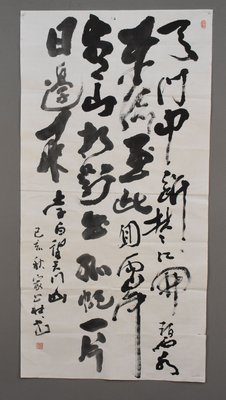 天门中断楚江开碧水
东流至此回两岸
青山相对出孤帆一片
日边来李白望天门山
己亥秋